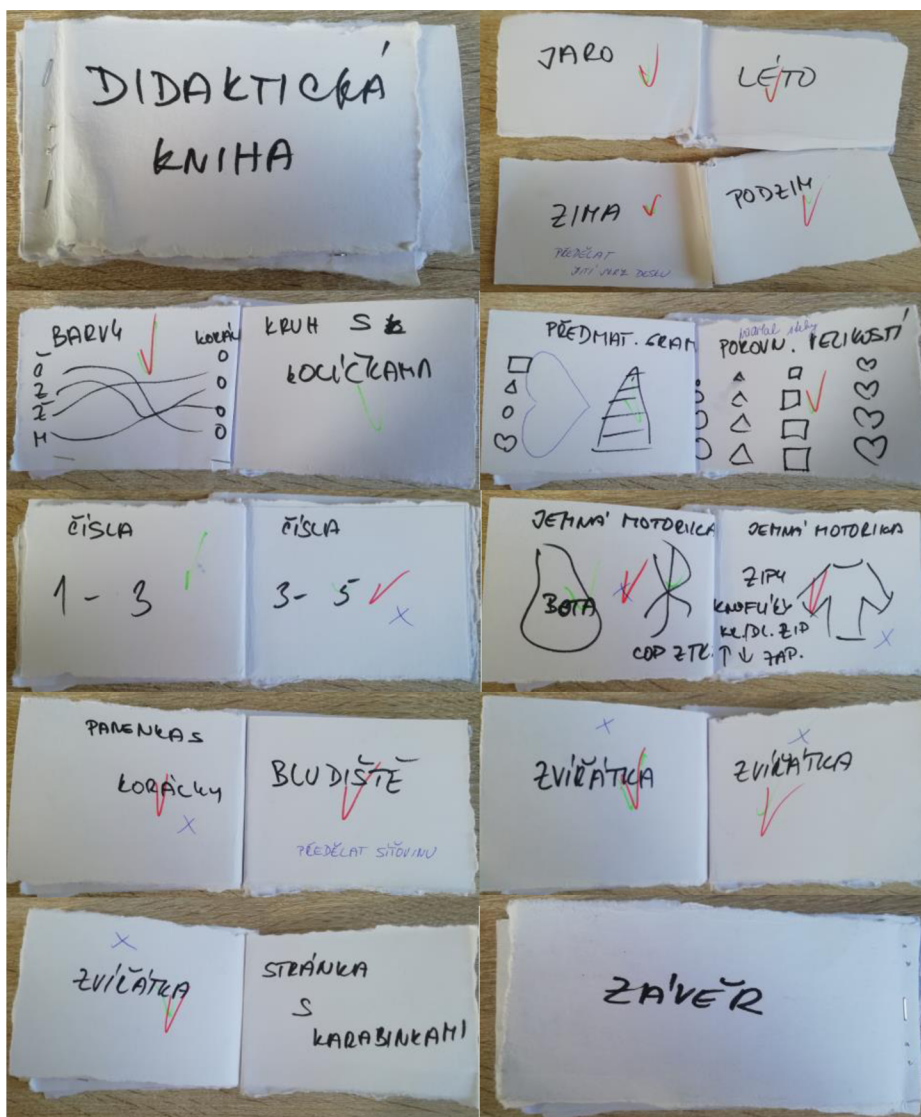 DIDAKTICKÁ
KNIHA
JARO
LÉTO
ZIMA
PŘEDĚLAT
PODZIM
BARVY
KORÁL
Č
Ž
M
KRUH S
KOLÍČKAMA
PŘEDMAT. GRAM
POROVN. VELIKOSTÍ
ČÍSLA
1 - 3
ČÍSLA
3 - 5
JEMNÁ MOTORIKA
BOTA
COP ZTK.
JEMNÁ MOTORIKA
ZIPY
KNOFLÍKY
ZIP
ZAP.
KORÁLKY
BLUDIŠTĚ
PŘEDĚLAT SÍŤOVINU
ZVÍŘÁTKA
ZVÍŘÁTKA
ZVÍŘÁTKA
STRÁNKA
S
KARABINKAMI
ZÁVĚR